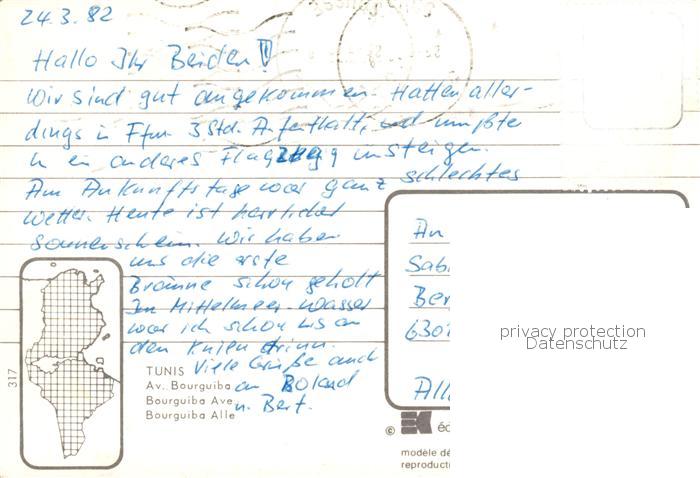 24.3.82
Hallo Ihr Beiden!
Wir sind gut angekommen. Hatten aller-
dings in Ffm 3 Std. Aufenthalt, und mußte
in ein anderes Flugzeug umsteigen.
Am Ankunftstage war ganz schlechtes
Wetter. Heute ist herrlicher
Sonnenschein. Wir haben
uns die erste
Bräune schon geholt
Im Mittelmeer-Wasser
war ich schon bis an
den Knien drinn.
Viele Grüße auch
an Roland
u. Bert.
An
Sab
Ber
6301
All
privacy protection
Datenschutz
317
TUNIS
Av. Bourguiba
Bourguiba Ave
Bourguiba Alle
© EK éd
modèle dé
reproducti